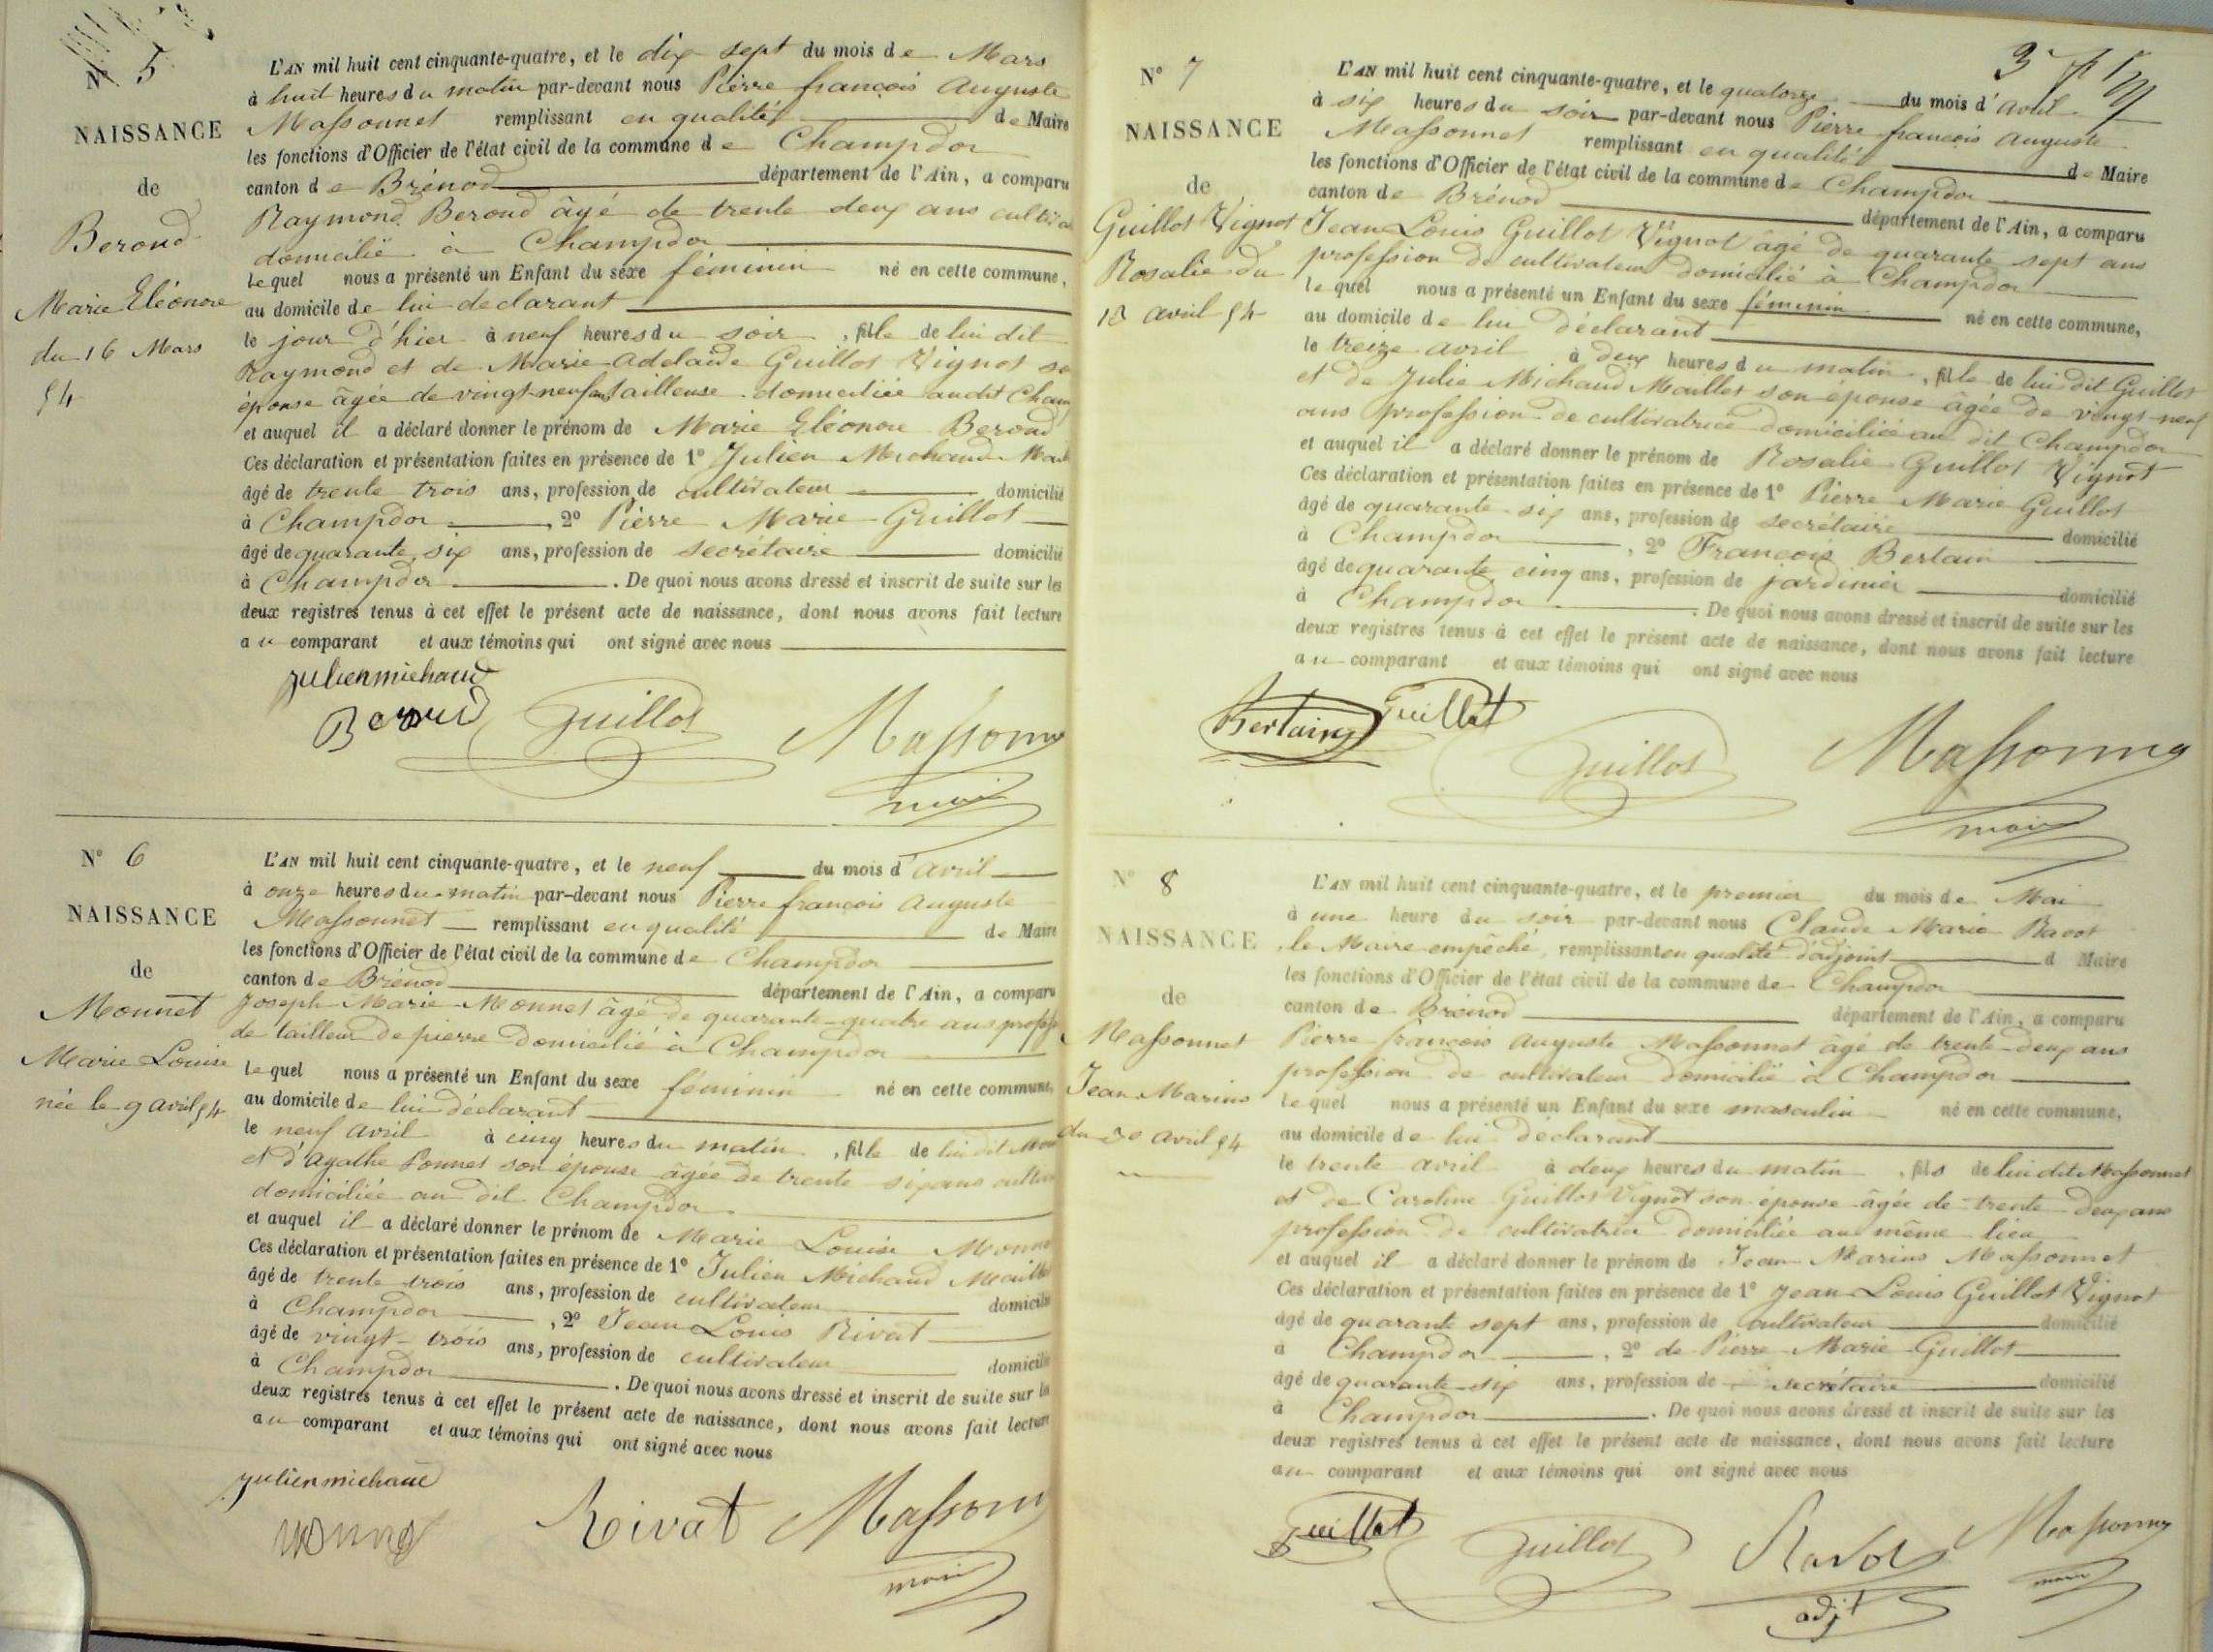 N° 5
NAISSANCE
de
Berond
Marie Eléonore
du 16 Mars
54
L'AN mil huit cent cinquante-quatre, et le dix sept du mois de Mars
à huit heures du matin par-devant nous Pierre françois Auguste
Massonnet remplissant en qualité de Maire
les fonctions d'Officier de l'état civil de la commune de Champdor
canton de Brénod département de l'Ain, a comparu
Raymond Berond âgé de trente deux ans
domicilié à Champdor
lequel nous a présenté un Enfant du sexe féminin né en cette commune,
au domicile de lui declarant
le jour d'hier à neuf heures du soir, fille de lui dit
Raymond et de Marie Adelaïde Guillot Vignot
épouse âgée de vingt-neuf ans tailleuse domiciliée audit
et auquel il a déclaré donner le prénom de Marie Eléonore Berond
Ces déclaration et présentation faites en présence de 1° Julien Michaud
âgé de trente trois ans, profession de cultivateur domicilié
à Champdor, 2° Pierre Marie Guillot
âgé de quarante six ans, profession de secrétaire domicilié
à Champdor. De quoi nous avons dressé et inscrit de suite sur les
deux registres tenus à cet effet le présent acte de naissance, dont nous avons fait lecture
au comparant et aux témoins qui ont signé avec nous
julien michaud
Berond Guillot Massonnet
maire
N° 6
NAISSANCE
de
Monnet
Marie Louise
née le 9 avril 54
L'AN mil huit cent cinquante-quatre, et le neuf du mois d'avril
à onze heures du matin par-devant nous Pierre françois Auguste
Massonnet remplissant en qualité de Maire
les fonctions d'Officier de l'état civil de la commune de Champdor
canton de Brénod département de l'Ain, a comparu
Joseph Marie Monnet âgé de quarante-quatre ans
de tailleur de pierre domicilié à Champdor
lequel nous a présenté un Enfant du sexe féminin né en cette commune,
au domicile de lui déclarant
le neuf avril à cinq heures du matin, fille de lui dit
et d'Agathe son épouse âgée de trente-six ans
domiciliée au dit Champdor
et auquel il a déclaré donner le prénom de Marie Louise
Ces déclaration et présentation faites en présence de 1° Julien Michaud Maillet
âgé de trente trois ans, profession de cultivateur domicilié
à Champdor, 2° Jean Louis Rivat
âgé de vingt-trois ans, profession de cultivateur domicilié
à Champdor. De quoi nous avons dressé et inscrit de suite sur les
deux registres tenus à cet effet le présent acte de naissance, dont nous avons fait lecture
au comparant et aux témoins qui ont signé avec nous
julien michaud
monnet Rivat Massonnet
maire
N° 7
NAISSANCE
de
Guillot Vignot
Rosalie du
13 avril 54
L'AN mil huit cent cinquante-quatre, et le quatorze du mois d'avril
à six heures du soir par-devant nous Pierre françois Auguste
Massonnet remplissant en qualité de Maire
les fonctions d'Officier de l'état civil de la commune de Champdor
canton de Brénod département de l'Ain, a comparu
Jean Louis Guillot Vignot âgé de quarante sept ans
profession de cultivateur domicilié à Champdor
lequel nous a présenté un Enfant du sexe féminin né en cette commune,
au domicile de lui déclarant
le treize avril à deux heures du matin, fille de lui dit Guillot
et de Julie Michaud Maillet son épouse âgée de vingt-neuf
ans profession de cultivatrice domiciliée au dit Champdor
et auquel il a déclaré donner le prénom de Rosalie Guillot Vignot
Ces déclaration et présentation faites en présence de 1° Pierre Marie Guillot
âgé de quarante six ans, profession de secrétaire domicilié
à Champdor, 2° François Bertain
âgé de quarante cinq ans, profession de jardinier domicilié
à Champdor. De quoi nous avons dressé et inscrit de suite sur les
deux registres tenus à cet effet le présent acte de naissance, dont nous avons fait lecture
au comparant et aux témoins qui ont signé avec nous
Bertain Guillot
Guillot Massonnet
maire
N° 8
NAISSANCE
de
Massonnet
Jean Marius
du 30 avril 54
L'AN mil huit cent cinquante-quatre, et le premier du mois de Mai
à une heure du soir par-devant nous Claude Marie Ravot
le Maire empêché, remplissant en qualité d'adjoint d Maire
les fonctions d'Officier de l'état civil de la commune de Champdor
canton de Brénod département de l'Ain, a comparu
Pierre françois Auguste Massonnet âgé de trente-deux ans
profession de cultivateur domicilié à Champdor
lequel nous a présenté un Enfant du sexe masculin né en cette commune,
au domicile de lui déclarant
le trente avril à deux heures du matin, fils de lui dit Massonnet
et de Caroline Guillot Vignot son épouse âgée de trente deux ans
profession de cultivatrice domiciliée au même lieu
et auquel il a déclaré donner le prénom de Jean Marius Massonnet
Ces déclaration et présentation faites en présence de 1° Jean Louis Guillot Vignot
âgé de quarante sept ans, profession de cultivateur domicilié
à Champdor, 2° de Pierre Marie Guillot
âgé de quarante-six ans, profession de secrétaire domicilié
à Champdor. De quoi nous avons dressé et inscrit de suite sur les
deux registres tenus à cet effet le présent acte de naissance, dont nous avons fait lecture
au comparant et aux témoins qui ont signé avec nous
Guillot Guillot Ravot Massonnet
adjt maire